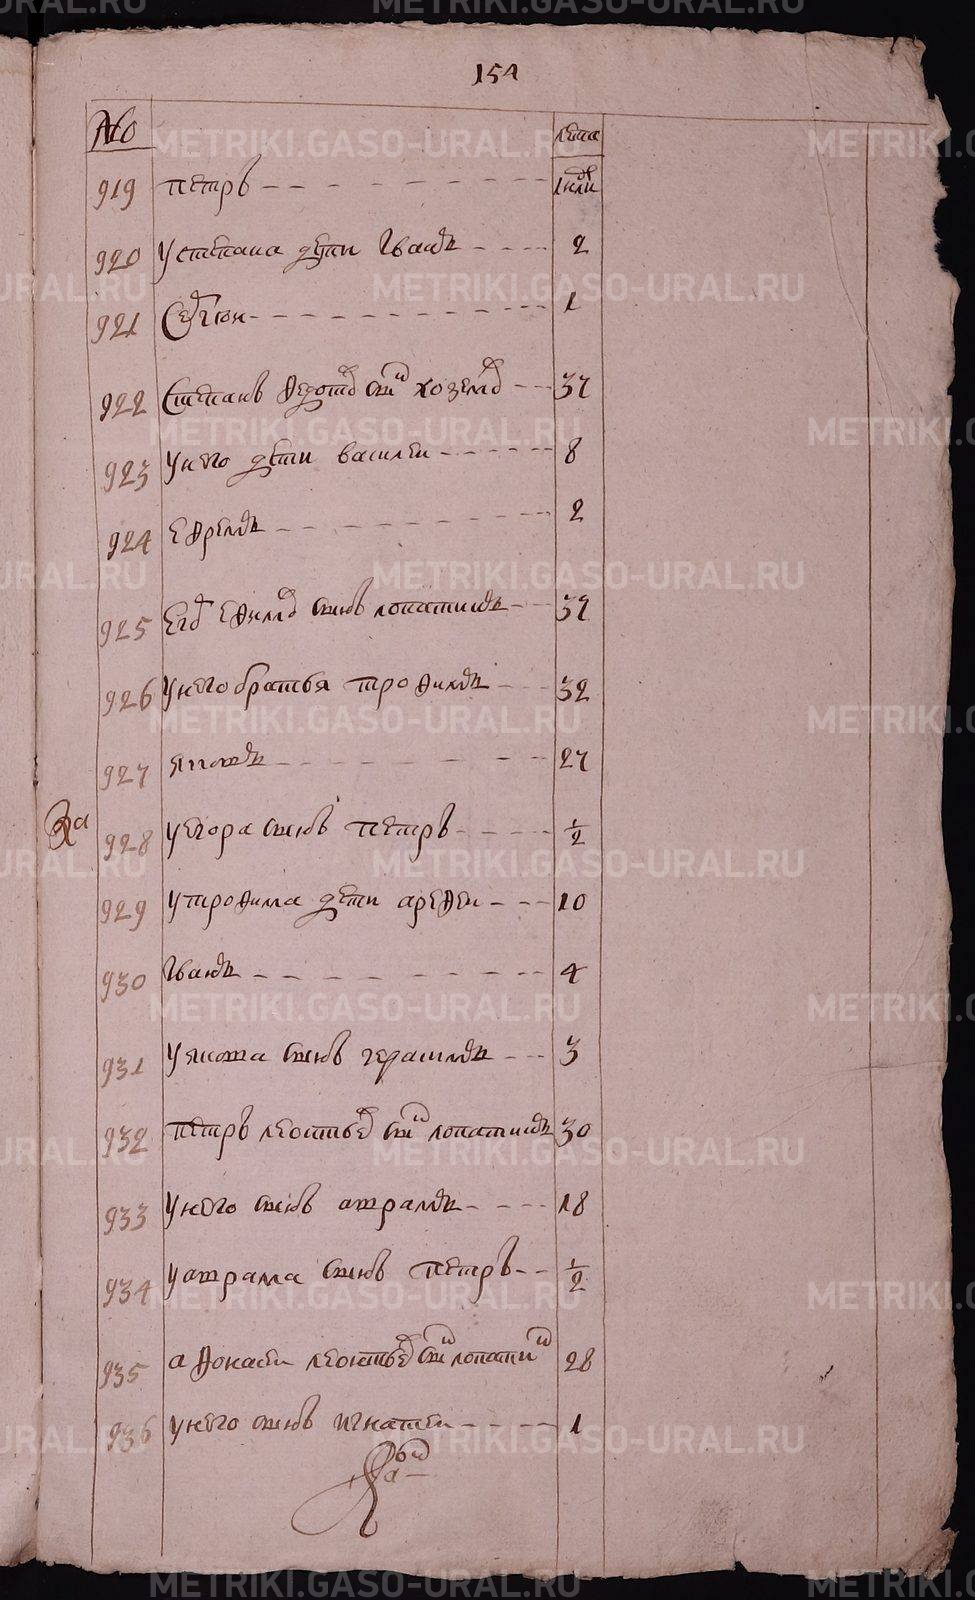 154
№ лета
919 петръ 1 нли
920 у степана дети Иванъ 2
921 Семион 1
922 Степанъ Федотов сын хоземов 37
923 у него дети василеи 8
924 Ефремъ 2
925 Егор Ефимов сынъ лопатинъ 39
926 у него братья трофимъ 32
927 яковъ 27
928 у егора сынъ петръ 1/2
929 у трофима дети арефеи 10
930 Иванъ 4
931 у якова сынъ герасимъ 3
932 петръ леонтьев сын лопатинъ 30
933 у него сынъ абрамъ 18
934 у абрама сынъ петръ 1/2
935 афонасеи леонтьев сын лопатин 28
936 у него сынъ игнатеи 1
METRIKI.GASO-URAL.RU